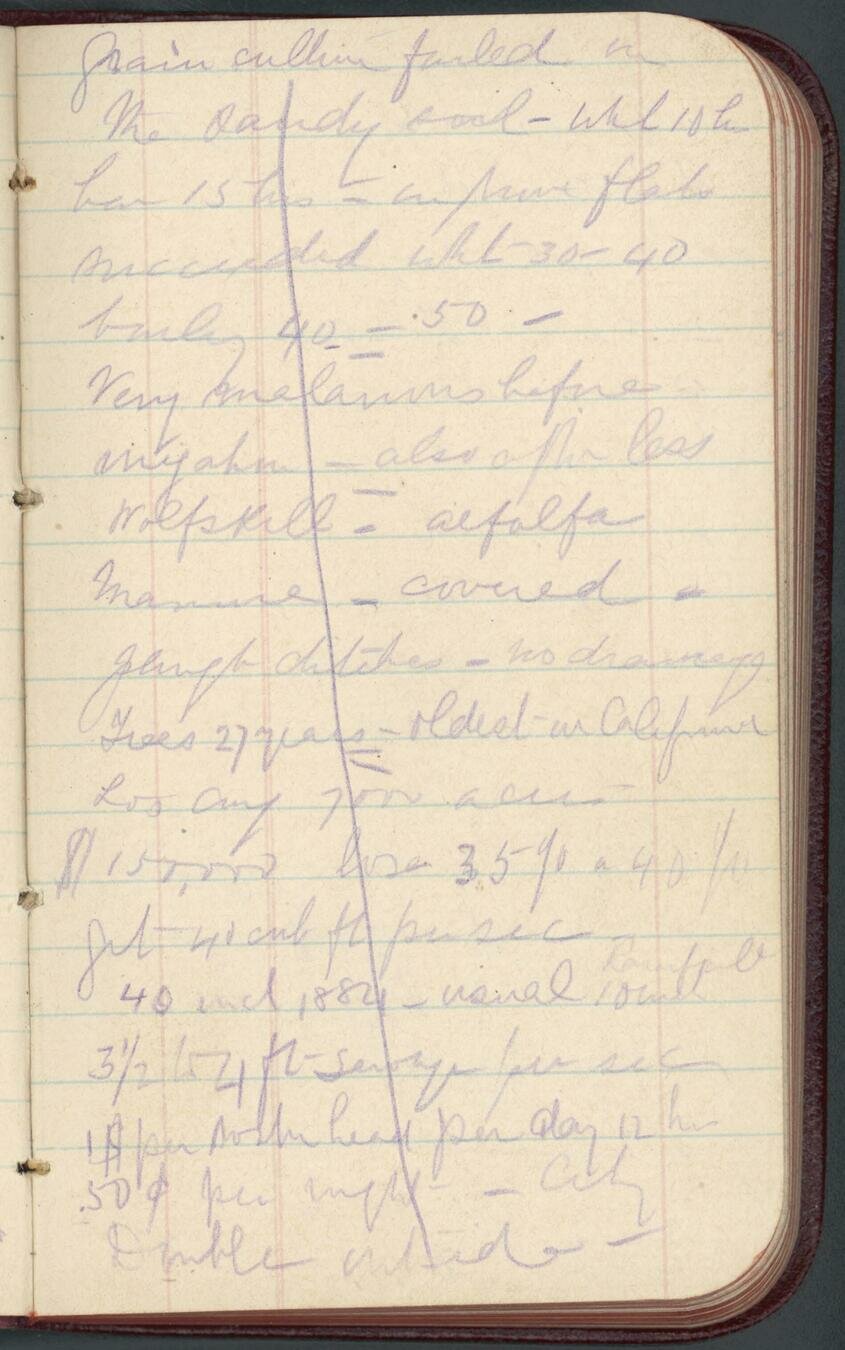 Grain culture failed on
the sandy soil - wht 10 bu
bar 15 bus - on flats
succeeded wht 30 - 40
barley 40 - 50 -
Very malarious before
irrigation - also after less
Wolfskill - alfalfa
Manure - covered -
plough ditches - no drainage
Trees 27 years - oldest in California
Los Ang 7000 acres
$150,000 lose 35% a 40 %
get 40 cub ft per sec
Rainfall
40 inch 1884 - usual 10 inch
3 1/2 to 4 ft sewage per sec
1$ per head per day 12 hr
.50¢ per night - City
Double outside -